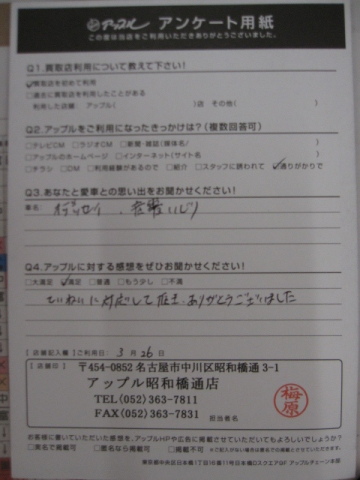 アップル アンケート用紙
この度は当店をご利用いただきありがとうございました。
Q1.買取店利用について教えて下さい!
☑買取店を初めて利用
□過去に買取店を利用したことがある
利用した店舗: アップル( )店 その他( )
Q2.アップルをご利用になったきっかけは?(複数回答可)
□テレビCM □ラジオCM □新聞・雑誌(媒体名/ )
□アップルのホームページ □インターネット(サイト名 )
□チラシ □DM □利用経験があるので □紹介 □スタッフに誘われて ☑通りがかりで
Q3.あなたと愛車との思い出をお聞かせください!
車名 オデッセイ、
Q4.アップルに対する感想をぜひお聞かせください!
□大満足 ☑満足 □普通 □もう少し □不満
ていねいに対応して ありがとうございました
[店舗記入欄] ご利用日: 3月26日
[店舗印]
〒454-0852 名古屋市中川区昭和橋通3-1
アップル昭和橋通店
TEL(052)363-7811
FAX(052)363-7831
担当者名
梅原
お客様に書いていただいた感想を、アップルHPや広告に掲載させていただいてもよろしいでしょうか?
□実名で掲載可 □匿名なら掲載可 □掲載不可
※ご記入がない場合は匿名での掲載とさせていただきます。
東京都中央区日本橋1丁目10番11号日本橋DスクエアGF アップルチェーン本部